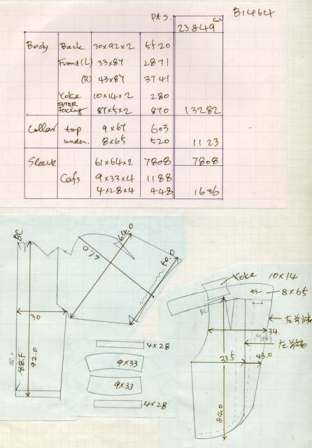 B1464
pts.
23849
Body Back 70×92×2 5520
Front(L) 33×87 2871
(R) 43×87 3741
Yoke 10×14×2 280
facing 87×5×2 870 13282
Collar top 9×67 603
under. 8×65 520 1123
Sleeve 61×64×2 7808 7808
Cafs 9×33×4 1188
4×28×4 448 1636
BC
30
88.5
92.0
4×28
9×33
9×33
4×28
Yoke 10×14
8×65
34
23.5
43.0